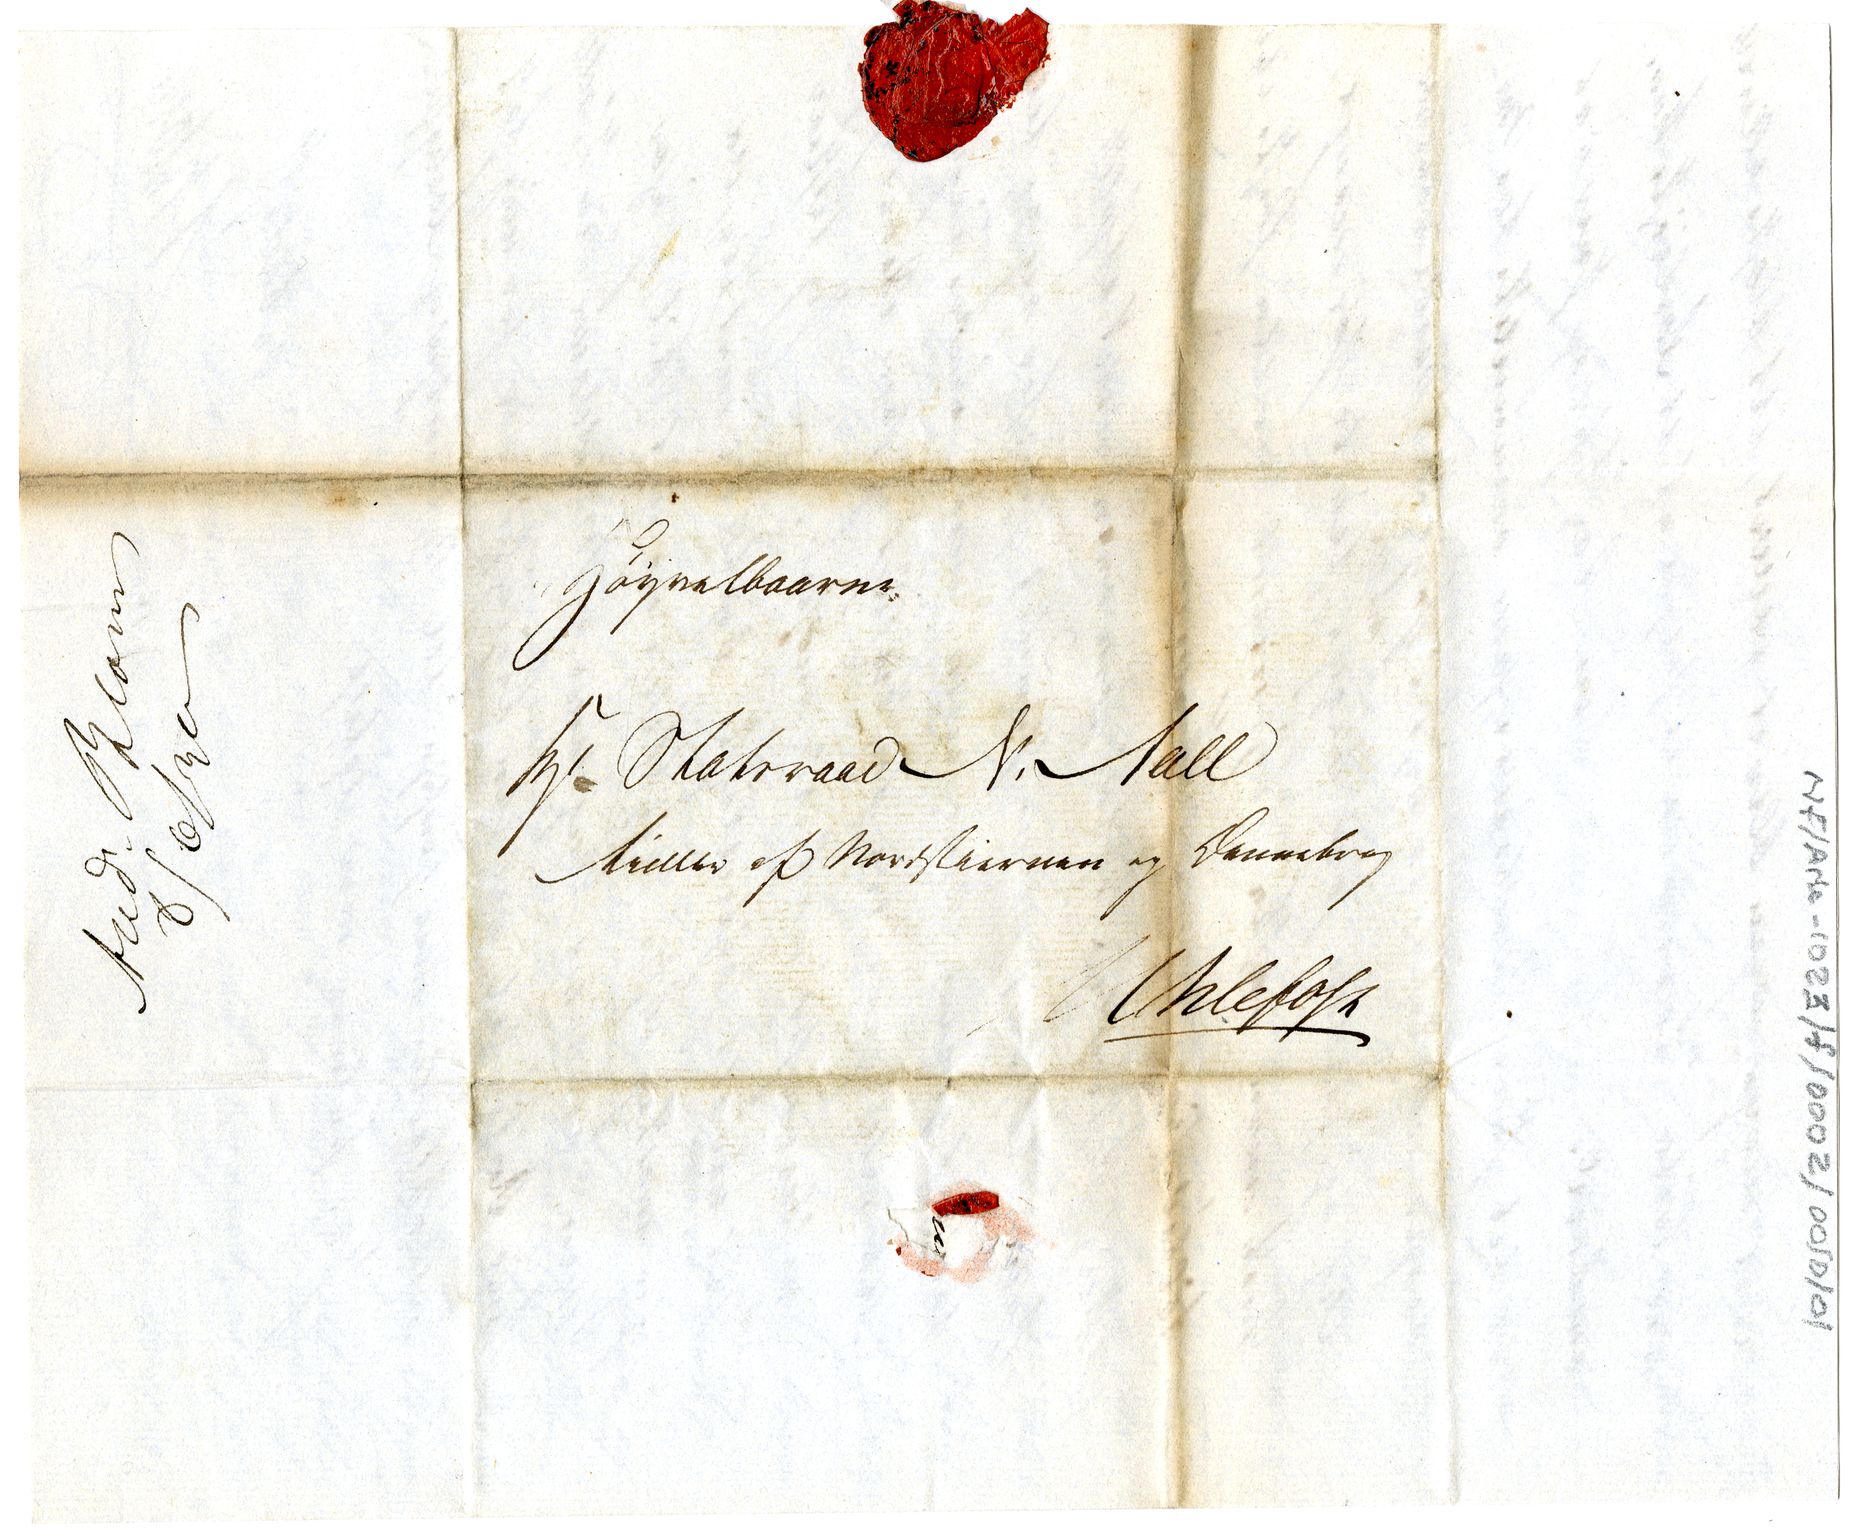 Höyvelbaarne
Hr. Statsraad N. Aall
Ridder af Nordstiernen og Dannebrog
Uhlefoss
And. Blom
NF/Ark-1023/F/0002/0050/01